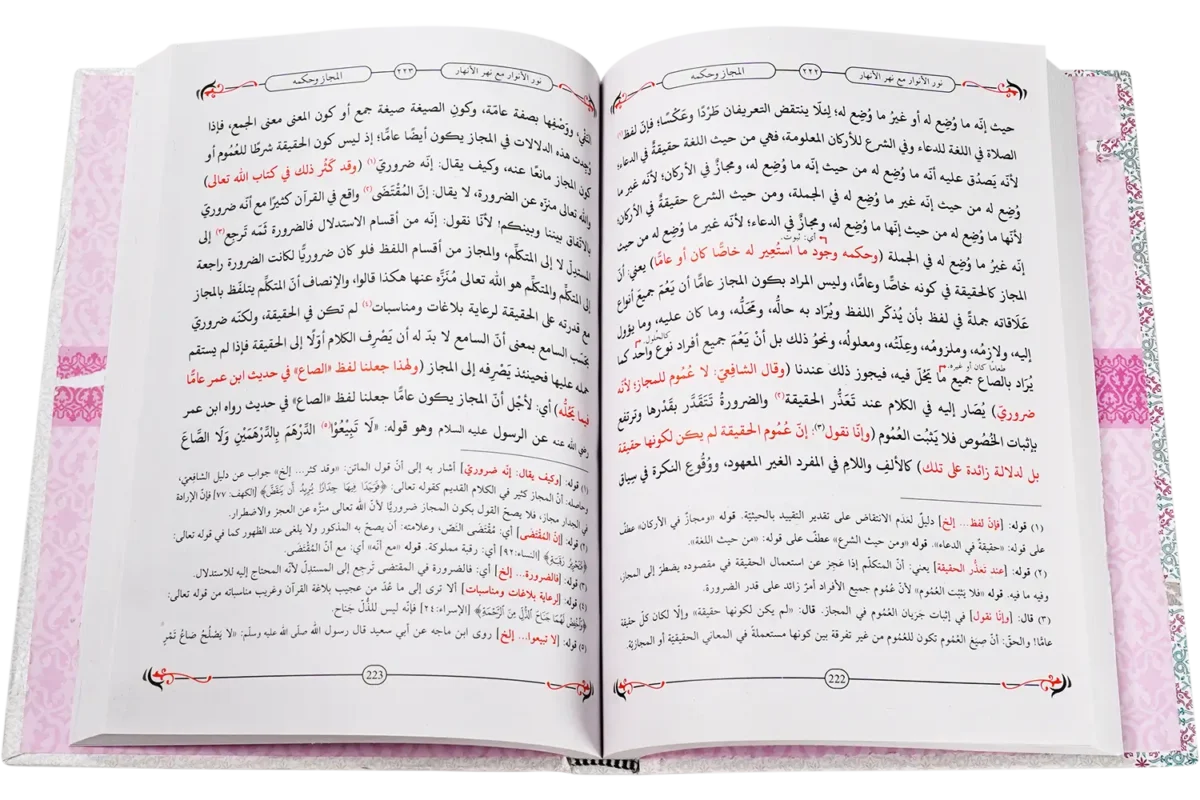 نور الأنوار مع نهر الأنهار
٢٢٢
المجاز وحكمه
حيث إنّه ما وُضِع له أو غيرُ ما وُضِع له؛ لِئلّا ينتقض التعريفان طَرْدًا وعَكْسًا؛ فإنّ لفظ(١)
الصلاة في اللغة للدعاء وفي الشرع للأركان المعلومة، فهي من حيث اللغة حقيقةٌ في الدعاء؛
لأنّه يَصدُق عليه أنّه ما وُضِع له من حيث إنّه ما وُضِع له، ومجازٌ في الأركان؛ لأنّه غير ما
وُضِع له من حيث إنّه غير ما وُضِع له في الجملة، ومن حيث الشرع حقيقةٌ في الأركان؛
لأنّها ما وُضِع له من حيث إنّها ما وُضِع له، ومجازٌ في الدعاء؛ لأنّه غير ما وُضِع له من حيث
أي: ثبوت.
إنّه غيرُ ما وُضِع له في الجملة (وحكمه وجود ما استُعِير له خاصًّا كان أو عامًّا) يعني أنّ
المجاز كالحقيقة في كونه خاصًّا وعامًّا، وليس المراد بكون المجاز عامًّا أن يَعُمّ جميعَ أنواع
عَلَاقاته جملةً في لفظ بأن يُذكَر اللفظ ويُرَاد به حالُّه، ومَحَلُّه، وما كان عليه، وما يؤول
إليه، ولازِمُه، وملزومُه، وعِلَّتُه، ومعلولُه، ونحوُ ذلك بل أنْ يَعُمّ جميع أفراد نوع واحد كما
كالحلول.
طعاما كان أو غيره.
يُرَاد بالصاع جميع ما يَحُلّ فيه، فيجوز ذلك عندنا (وقال الشافِعِيّ: لا عُموم للمجاز؛ لأنّه
ضروريّ) يُصَار إليه في الكلام عند تَعَذُّر الحقيقة(٢) والضرورةُ تَتَقَدَّر بقَدْرها وترتفع
بإثبات الخُصُوص فلا يَثبُت العُموم (وإنّا نقول(٣): إنّ عُموم الحقيقة لم يكن لكونها حقيقة
بل لدلالة زائدة على تلك) كالألف واللام في المفرد الغير المعهود، ووُقُوعِ النكرة في سِياق
(١) قوله: [فإنّ لفظ... إلخ] دليلٌ لعَدَم الانتقاض على تقدير التقييد بالحيثيّة. قوله «ومجازٌ في الأركان» عطفٌ
على قوله: «حقيقةٌ في الدعاء». قوله «ومن حيث الشرع» عطفٌ على قوله: «من حيث اللغة».
(٢) قوله: [عند تعَذُّر الحقيقة] يعني: أنّ المتكلِّم إذا عجز عن استعمال الحقيقة في مقصوده يضطرّ إلى المجاز،
وفيه ما فيه. قوله «فلا يَثبُت العُموم» لأنّ عُموم جميع الأفراد أمرٌ زائد على قدر الضرورة.
(٣) قال: [وإنّا نقول] في إثبات جَرَيان العُموم في المجاز. قال: «لم يكن لكونها حقيقة» وإلّا لكان كلّ حقيقة
عامًّا؛ والحقّ: أنّ صِيَغ العُموم تكون للعُموم من غير تفرقة بين كونها مستعملة في المعاني الحقيقيّة أو المجازيّة.
222
نور الأنوار مع نهر الأنهار
٢٢٣
المجاز وحكمه
النفي، ووَصْفِها بصفة عامّة، وكونِ الصيغة صيغة جمع أو كون المعنى معنى الجمع، فإذا
وُجِدت هذه الدلالات في المجاز يكون أيضًا عامًّا؛ إذ ليس كون الحقيقة شرطًا للعُموم أو
كون المجاز مانعًا عنه، وكيف يقال: إنّه ضروريّ(١) (وقد كَثُر ذلك في كتاب الله تعالى)
والله تعالى منزَّه عن الضرورة، لا يقال: إنّ المُقْتَضَى(٢) واقع في القرآن كثيرًا مع أنّه ضروريّ
بالاتفاق بيننا وبينكم؛ لأنّا نقول: إنّه من أقسام الاستدلال فالضرورة ثَمّه ترجِع(٣) إلى
المستدِلّ لا إلى المتكلِّم، والمجاز من أقسام اللفظ فلو كان ضروريًّا لكانت الضرورة راجعة
إلى المتكلِّم والمتكلِّم هو الله تعالى مُنَزَّه عنها هكذا قالوا، والإنصاف أنّ المتكلِّم يتلفَّظ بالمجاز
مع قدرته على الحقيقة لرعاية بلاغات ومناسبات(٤) لم تكن في الحقيقة، ولكنّه ضروريّ
بحَسْب السامع بمعنى أنّ السامع لا بدّ له أن يَصْرِف الكلام أوّلًا إلى الحقيقة فإذا لم يستقم
حمله عليها فحينئذ يَصْرِفه إلى المجاز (ولهذا جعلنا لفظ «الصاع» في حديث ابن عمر عامًّا
فيما يَحُلّه) أي: لأجْل أنّ المجاز يكون عامًّا جعلنا لفظ «الصاع» في حديث رواه ابن عمر
رضي الله عنه عن الرسول عليه السلام وهو قوله: «لَا تَبِيْعُوْا(٥) الدِّرْهَمَ بِالدِّرْهَمَيْنِ وَلَا الصَّاعَ
(١) قوله: [وكيف يقال: إنّه ضروريّ] أشار به إلى أنّ قول الماتن: «وقد كثر... إلخ» جواب عن دليل الشافعيّ،
وحاصله: أنّ المجاز كثير في الكلام القديم كقوله تعالى: ﴿فَوَجَدَا فِيهَا جِدَارًا يُرِيدُ أَن يَنقَضَّ﴾ [الكهف: ٧٧] فإنّ الإرادة
في الجدار مجاز، فلا يصحّ القول بكون المجاز ضروريًّا لأنّ الله تعالى منزَّه عن العجز والاضطرار.
(٢) قوله: [إنّ المُقْتَضَى] أي: مُقْتَضَى النَصّ، وعلامته: أن يصحّ به المذكور ولا يلغى عند الظهور كما في قوله تعالى:
﴿فَتَحْرِيرُ رَقَبَةٍ﴾ [النساء:٩٢] أي: رقبة مملوكة. قوله «مع أنّه» أي: مع أنّ المُقْتَضَى.
(٣) قوله: [فالضرورة... إلخ] أي: فالضرورة في المقتضى تَرجع إلى المستدِلّ لأنّه المحتاج إليه للاستدلال.
(٤) قوله: [لرعاية بلاغات ومناسبات] ألا ترى إلى ما عُدّ من عجيب بلاغة القرآن وغريب مناسباته من قوله تعالى:
﴿وَٱخْفِضْ لَهُمَا جَنَاحَ ٱلذُّلِّ مِنَ ٱلرَّحْمَةِ﴾ [الإسراء:٢٤] فإنّه ليس للذُّلّ جَناح.
(٥) قوله: [لا تبيعوا... إلخ] روى ابن ماجه عن أبي سعيد قال رسول الله صلّى الله عليه وسلّم: «لا يَصْلُحُ صَاعُ تَمْرٍ
223